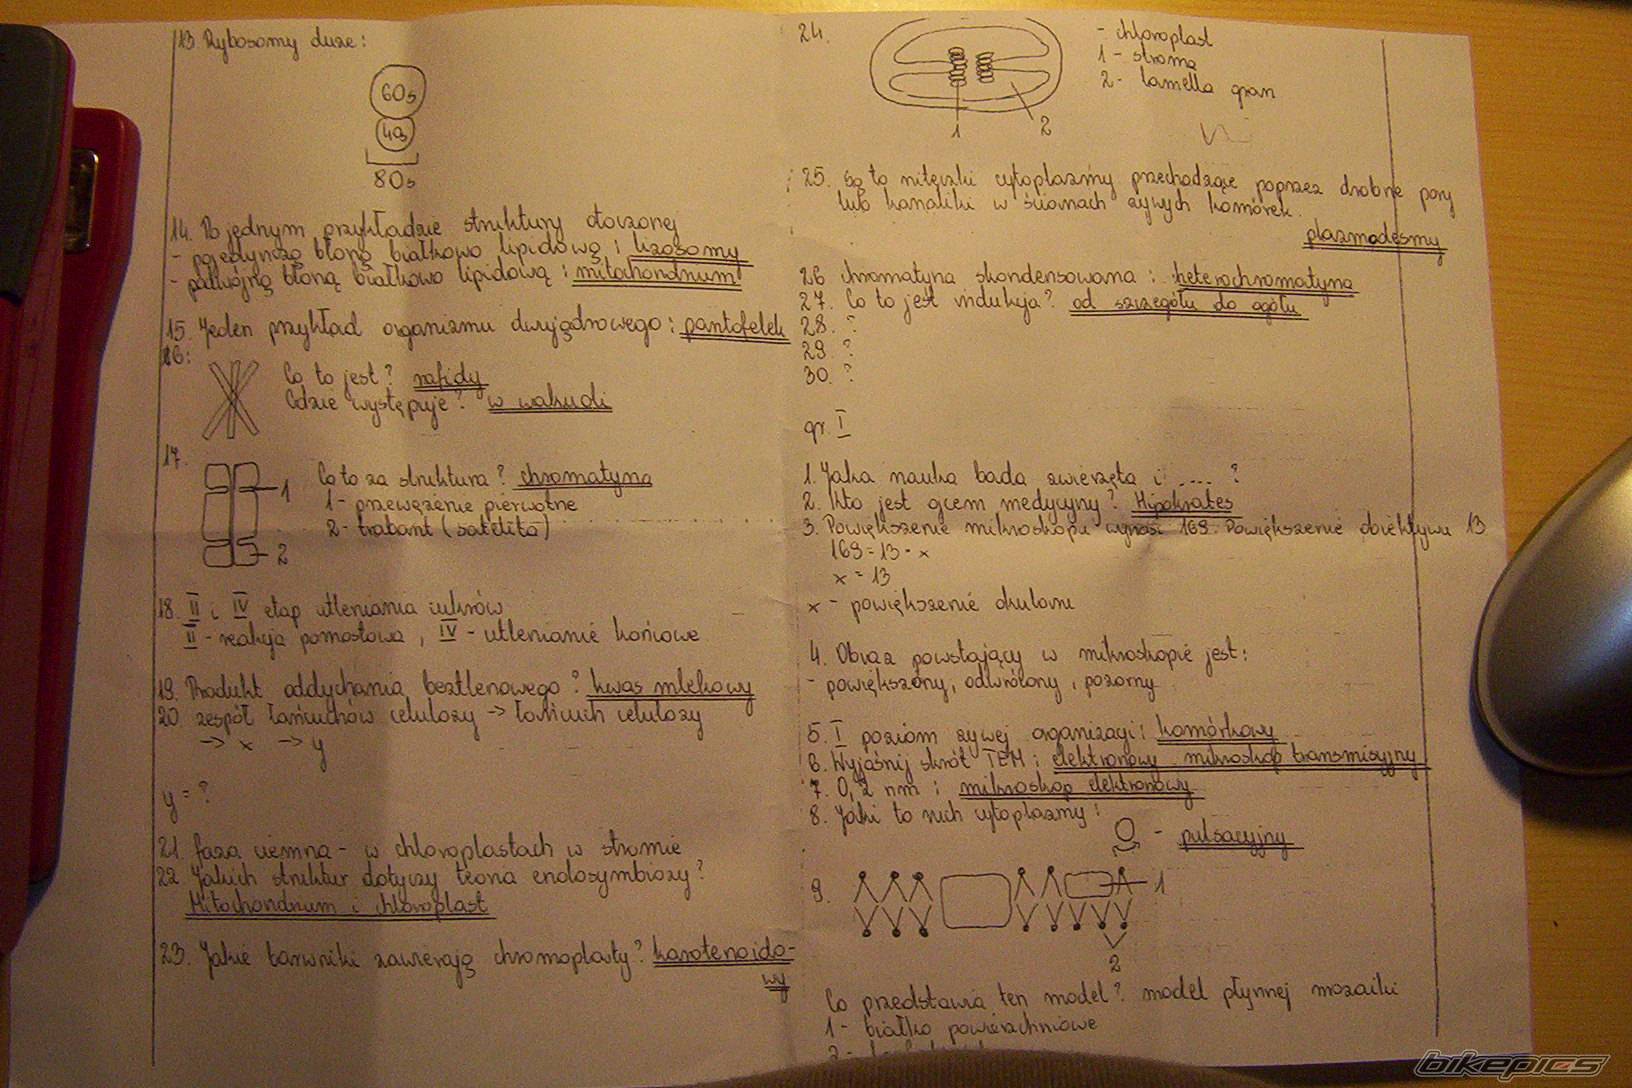 13. Rybosomy duże:
60s
40s
80s
14. Po jednym przykładzie struktury otoczonej
- pojedynczą błoną białkowo lipidową : lizosomy
- podwójną błoną białkowo lipidową : mitochondrium
15. Jeden przykład organizmu dwujądrowego : pantofelek
16:
Co to jest? rafidy
Gdzie występuje? w wakuoli
17.
Co to za struktura? chromatyna
1
1 - przewężenie pierwotne
2 - trabant (satelita)
2
18. II i IV etap utleniania cukrów
II - reakcja pomostowa, IV - utlenianie końcowe
19. Produkt oddychania beztlenowego? kwas mlekowy
20. zespół łańcuchów celulozy -> łańcuch celulozy
-> x -> y
y = ?
21. faza ciemna - w chloroplastach w stromie
22. Jakich struktur dotyczy teoria endosymbiozy?
Mitochondrium i chloroplast
23. Jakie barwniki zawierają chromoplasty? karotenoido-
wy
24.
- chloroplast
1 - stroma
2 - lamella gran
1
2
25. Są to niteczki cytoplazmy przechodzące poprzez drobne pory
lub kanaliki w ścianach żywych komórek.
plazmodesmy
26 chromatyna skondensowana : heterochromatyna
27. Co to jest indukcja? od szczegółu do ogółu
28. ?
29. ?
30. ?
gr. I
1. Jaka nauka bada zwierzęta i .... ?
2. Kto jest ojcem medycyny? Hipokrates
3. Powiększenie mikroskopu wynosi 169. Powiększenie obiektywu 13.
169 = 13 · x
x = 13
x - powiększenie okularu
4. Obraz powstający w mikroskopie jest:
- powiększony, odwrócony, pozorny
5. I poziom żywej organizacji: komórkowy
6. Wyjaśnij skrót TEM : elektronowy mikroskop transmisyjny
7. 0,2 nm : mikroskop elektronowy
8. Jaki to ruch cytoplazmy :
- pulsacyjny
9.
1
2
Co przedstawia ten model? model płynnej mozaiki
1 - białko powierzchniowe
2 -
bikepics